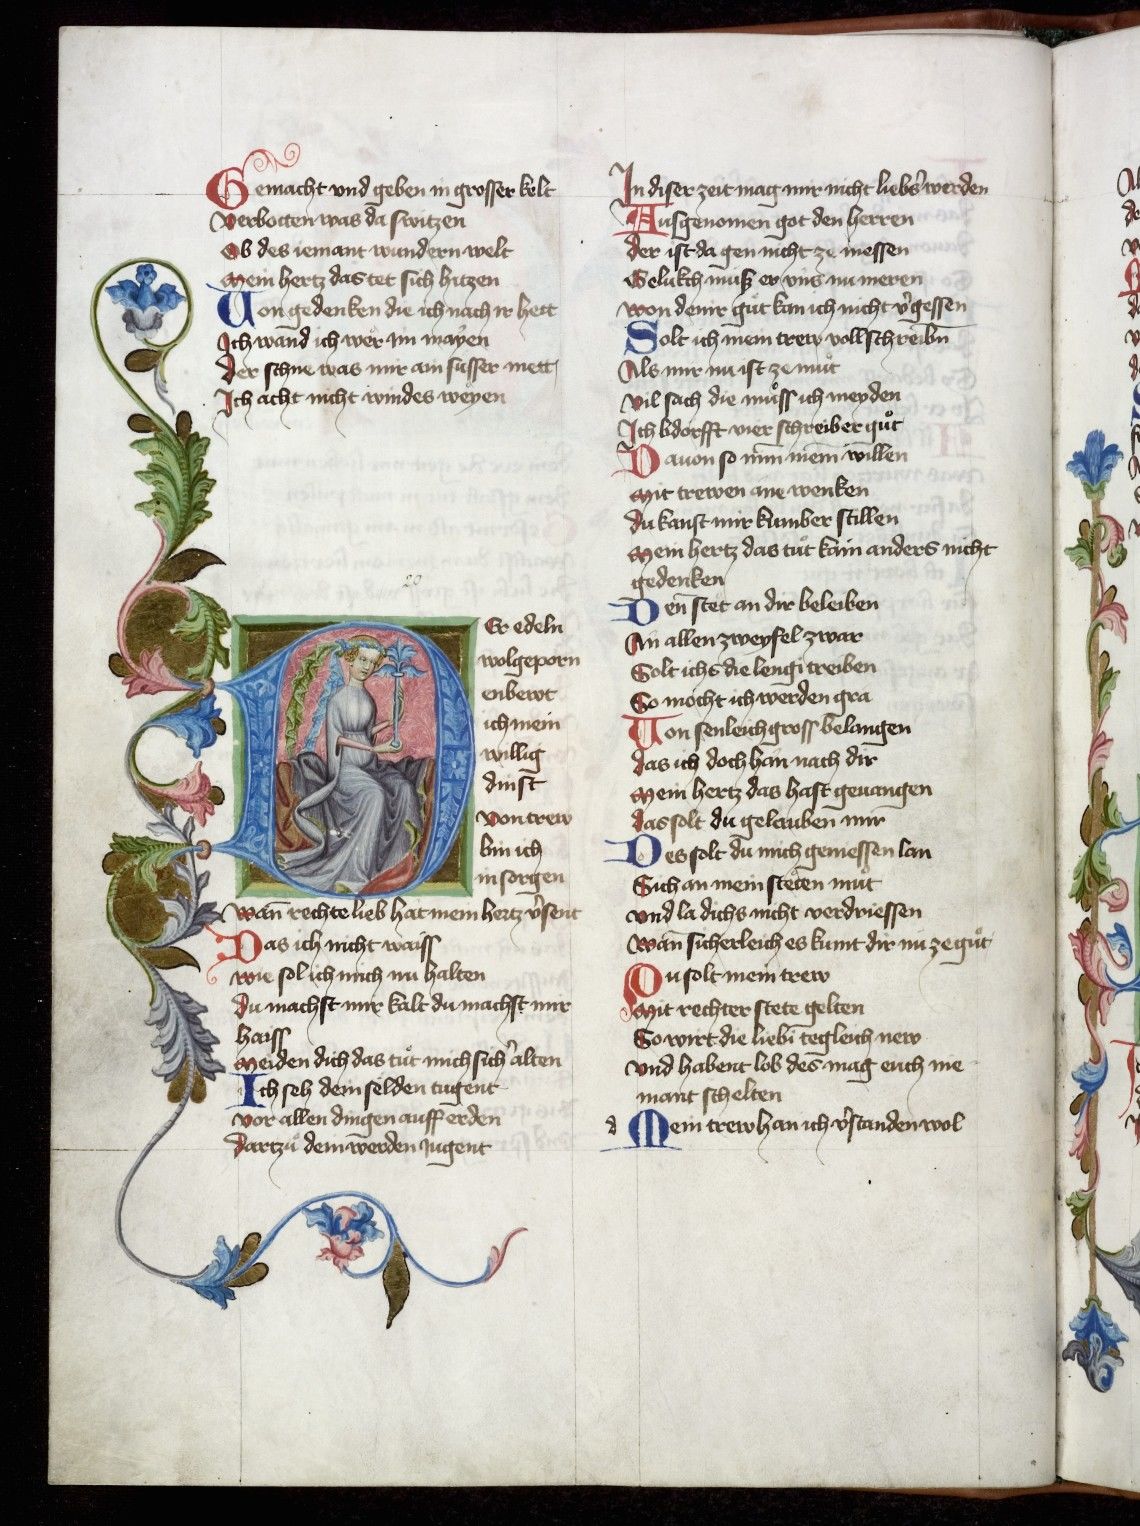 Gemacht vnd geben in grosser kelt
Verbotten was da switzen
Ob des iemant wundern welt
Mein hertz das tet sich hitzen
Von gedenken die ich nach ir hett
Ich wand ich wer im mayen
Der schne was mir ain susser mett
Ich acht nicht windes weyen
20
Der edeln
wolgeporn
enbewt
ich mein
willig
dinst
Von trew
bin ich
in sorgen
Wañ rechte lieb hat mein hertz v͛sent
Das ich nicht waiss
wie sol ich mich nu halten
du machst mir kalt du machst mir
haiss
Meiden dich das tůt mich sich͛ alten
Ich seh dein selden tugent
Vor allen dingen auff erden
Dartzů dem werden Jugent
In diser zeit mag mir nicht liebs͛ werden
Ausgenomen got den herren
der ist da gen nicht ze messen
Gelukch můß er vns nu meren
won deinr gůt kan ich nicht v͛gessen
Solt ich mein trew vollschreibñ
Als mir nu ist ze můt
Vil sach die můss ich meyden
Ich bdorfft vier schreiber gůt
Dauon so nim mein willen
Mit trewen ane wenken
du kanst mir kumber stillen
Mein hertz das tůt kain anders nicht
gedenken
Den stet an dir beleiben
An allen zweyfel zwar
Solt ichs die lengi treiben
So mocht ich werden gra
Von senleich gross belangen
das ich doch han nach dir
Mein hertz das hast geuangen
das solt du gelauben mir
Des solt du mich geniessen lan
Sich an mein steten můt
vnd la dichs nicht verdriessen
wan sicherleich es kumt dir nu ze gůt
Du solt mein trew
Mit rechter stete gelten
So wirt die liebi tegleich new
Vnd habent lob des mag euch nie
mant schelten
d Mein trew han ich v͛standen wol